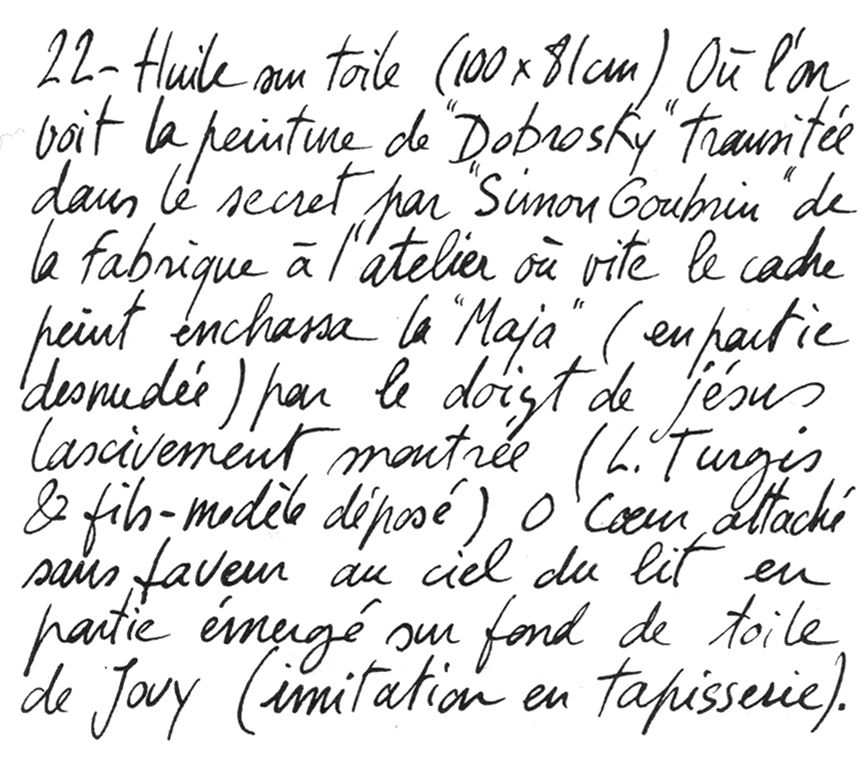 22- Huile sur toile (100 x 81 cm) Où l'on
voit la peinture de "Dobrosky" transitée
dans le secret par "Simon Goubrin" de
la fabrique à l'atelier où vite le cadre
peint enchassa la "Maja" (en partie
desnudée) par le doigt de jésus
lascivement montrée (L. Turgis
& fils - modèle déposé) O Cœur attaché
sans faveur au ciel du lit en
partie émergé sur fond de toile
de Jouy (imitation en tapisserie).